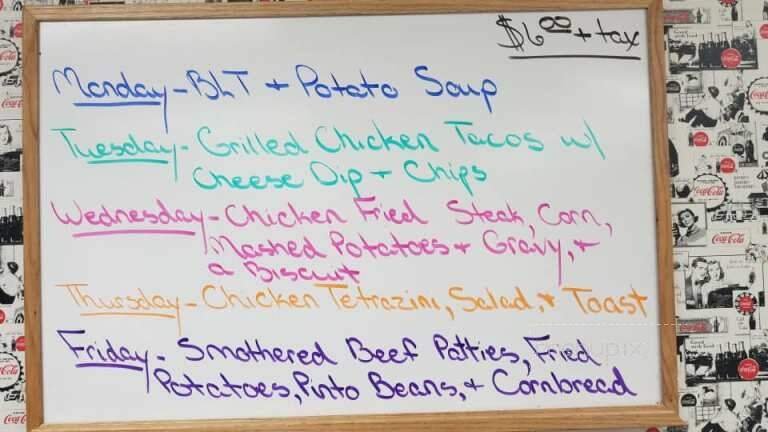 $6.00 + tax
Monday - BLT + Potato Soup
Tuesday - Grilled Chicken Tacos w/
Cheese Dip + Chips
Wednesday - Chicken Fried Steak, Corn,
Mashed Potatoes + Gravy, +
a Biscuit
Thursday - Chicken Tetrazini, Salad, + Toast
Friday - Smothered Beef Patties, Fried
Potatoes, Pinto Beans, + Cornbread
Coca-Cola
Coca-Cola
Coca-Cola
Coca-Cola